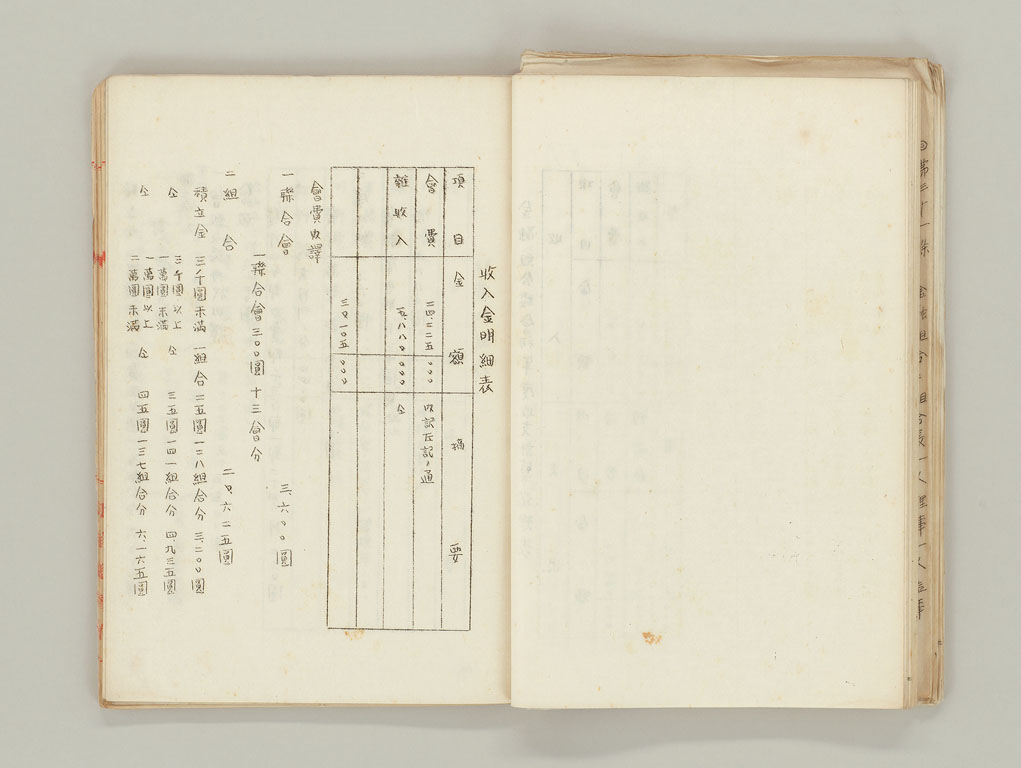 收入金明細表
項目 金額 摘要
會費 二四、二二五 〇〇〇 内訳左記ノ通
雜收入 〇〇〇 仝
三〇、一〇五 〇〇〇
會費内譯
一聯合會 三、六〇〇圓
一聯合會三〇〇圓 十三會分
二組合 二〇、六二五圓
積立金 三千圓未滿 一組合二五圓 一二八組合分 三、二〇〇圓
仝 三千圓以上 一萬圓未滿 仝 三五圓 一四一組合分 四、九三五圓
仝 一萬圓以上 二萬圓未滿 仝 四五圓 一三七組合分 六、一六五圓